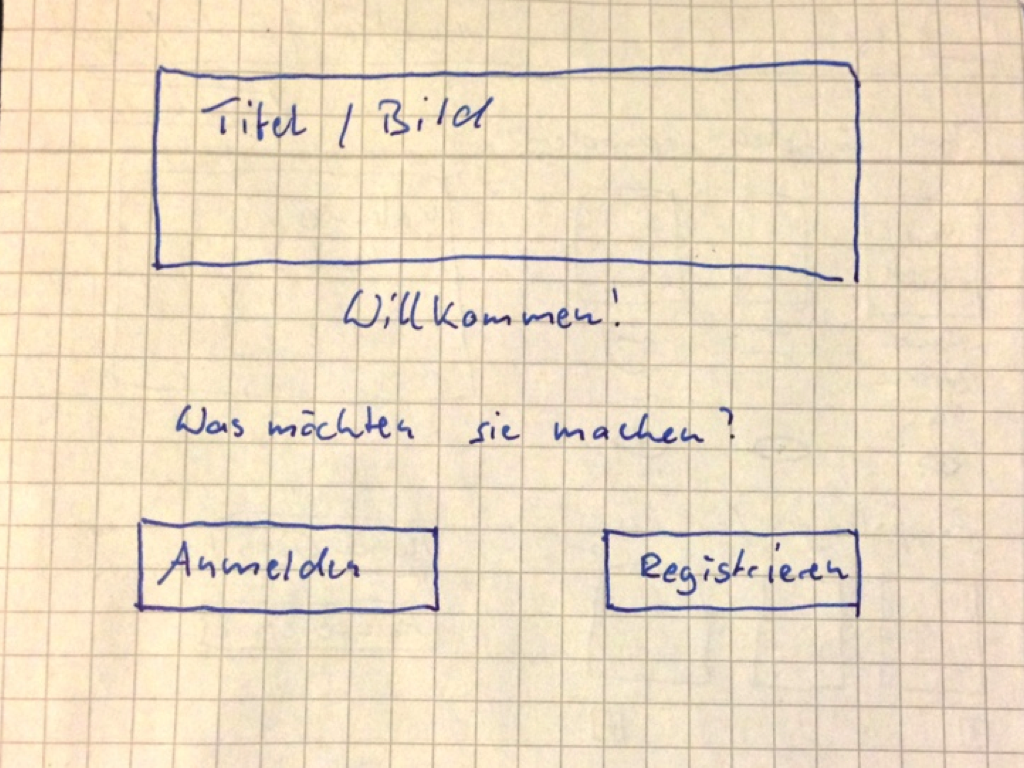 Titel / Bild
Willkommen!
Was möchten sie machen?
Anmelden
Registrieren